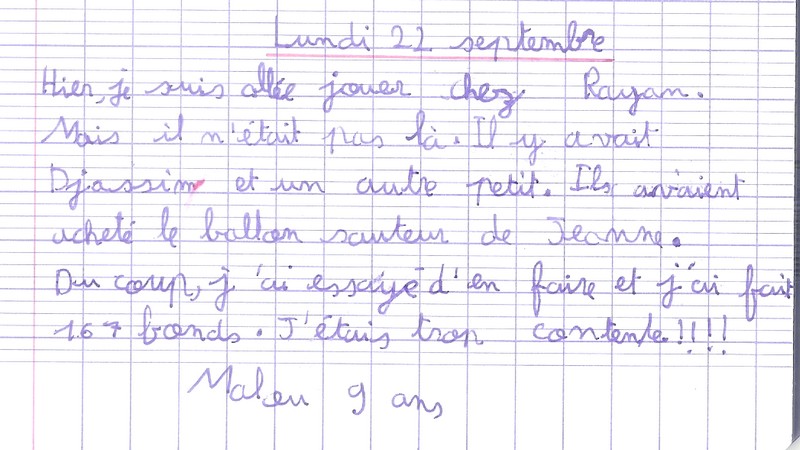 Lundi 22 septembre
Hier, je suis allée jouer chez Rayan.
Mais il n'était pas là. Il y avait
Djassim et un autre petit. Ils avaient
acheté le ballon sauteur de Jeanne.
Du coup, j'ai essayé d'en faire et j'ai fait
167 bonds. J'étais trop contente!!!!
9 ans